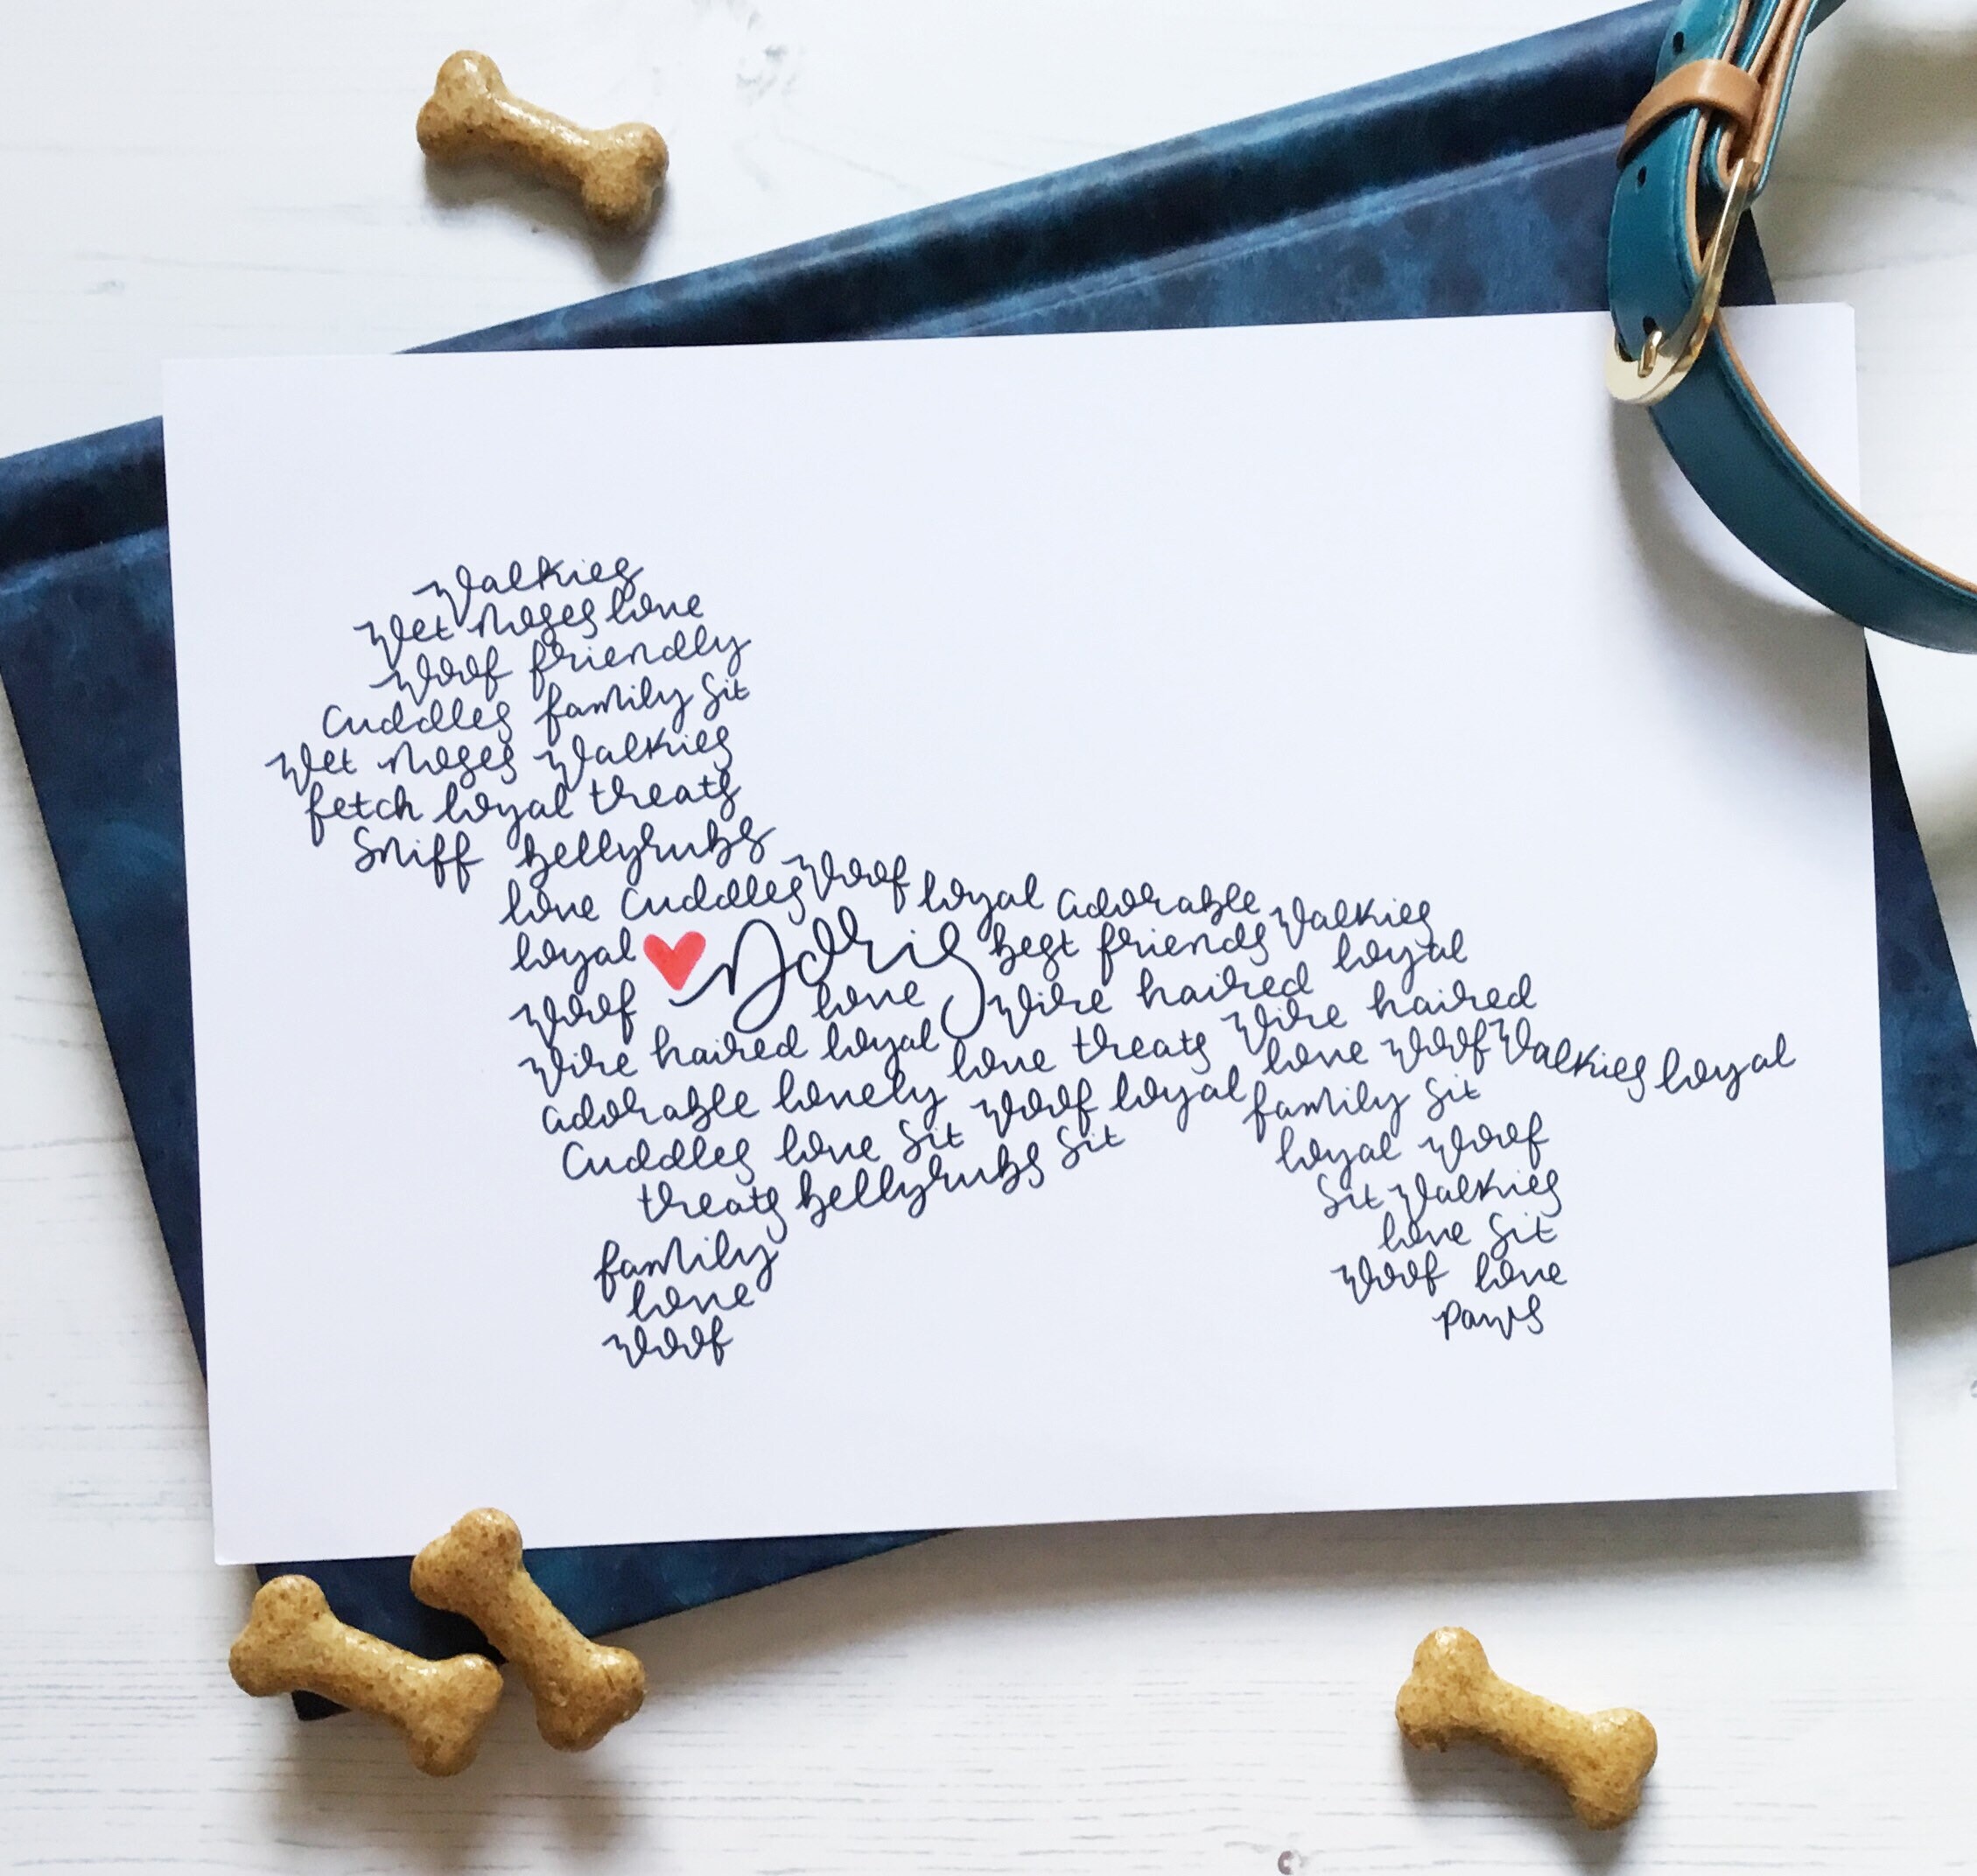 Walkies
Wet Noses love
Woof friendly
Cuddles family Sit
Wet Noses Walkies
fetch loyal treats
Sniff bellyrubs
love Cuddles Woof loyal adorable Walkies
loyal Doris best friends loyal
Woof love Wire haired Wire haired
Wire haired loyal love treats love Woof Walkies loyal
adorable lovely Woof loyal family Sit
Cuddles love Sit loyal Woof
treats bellyrubs Sit Sit Walkies
family love Sit
love Woof love
Woof paws